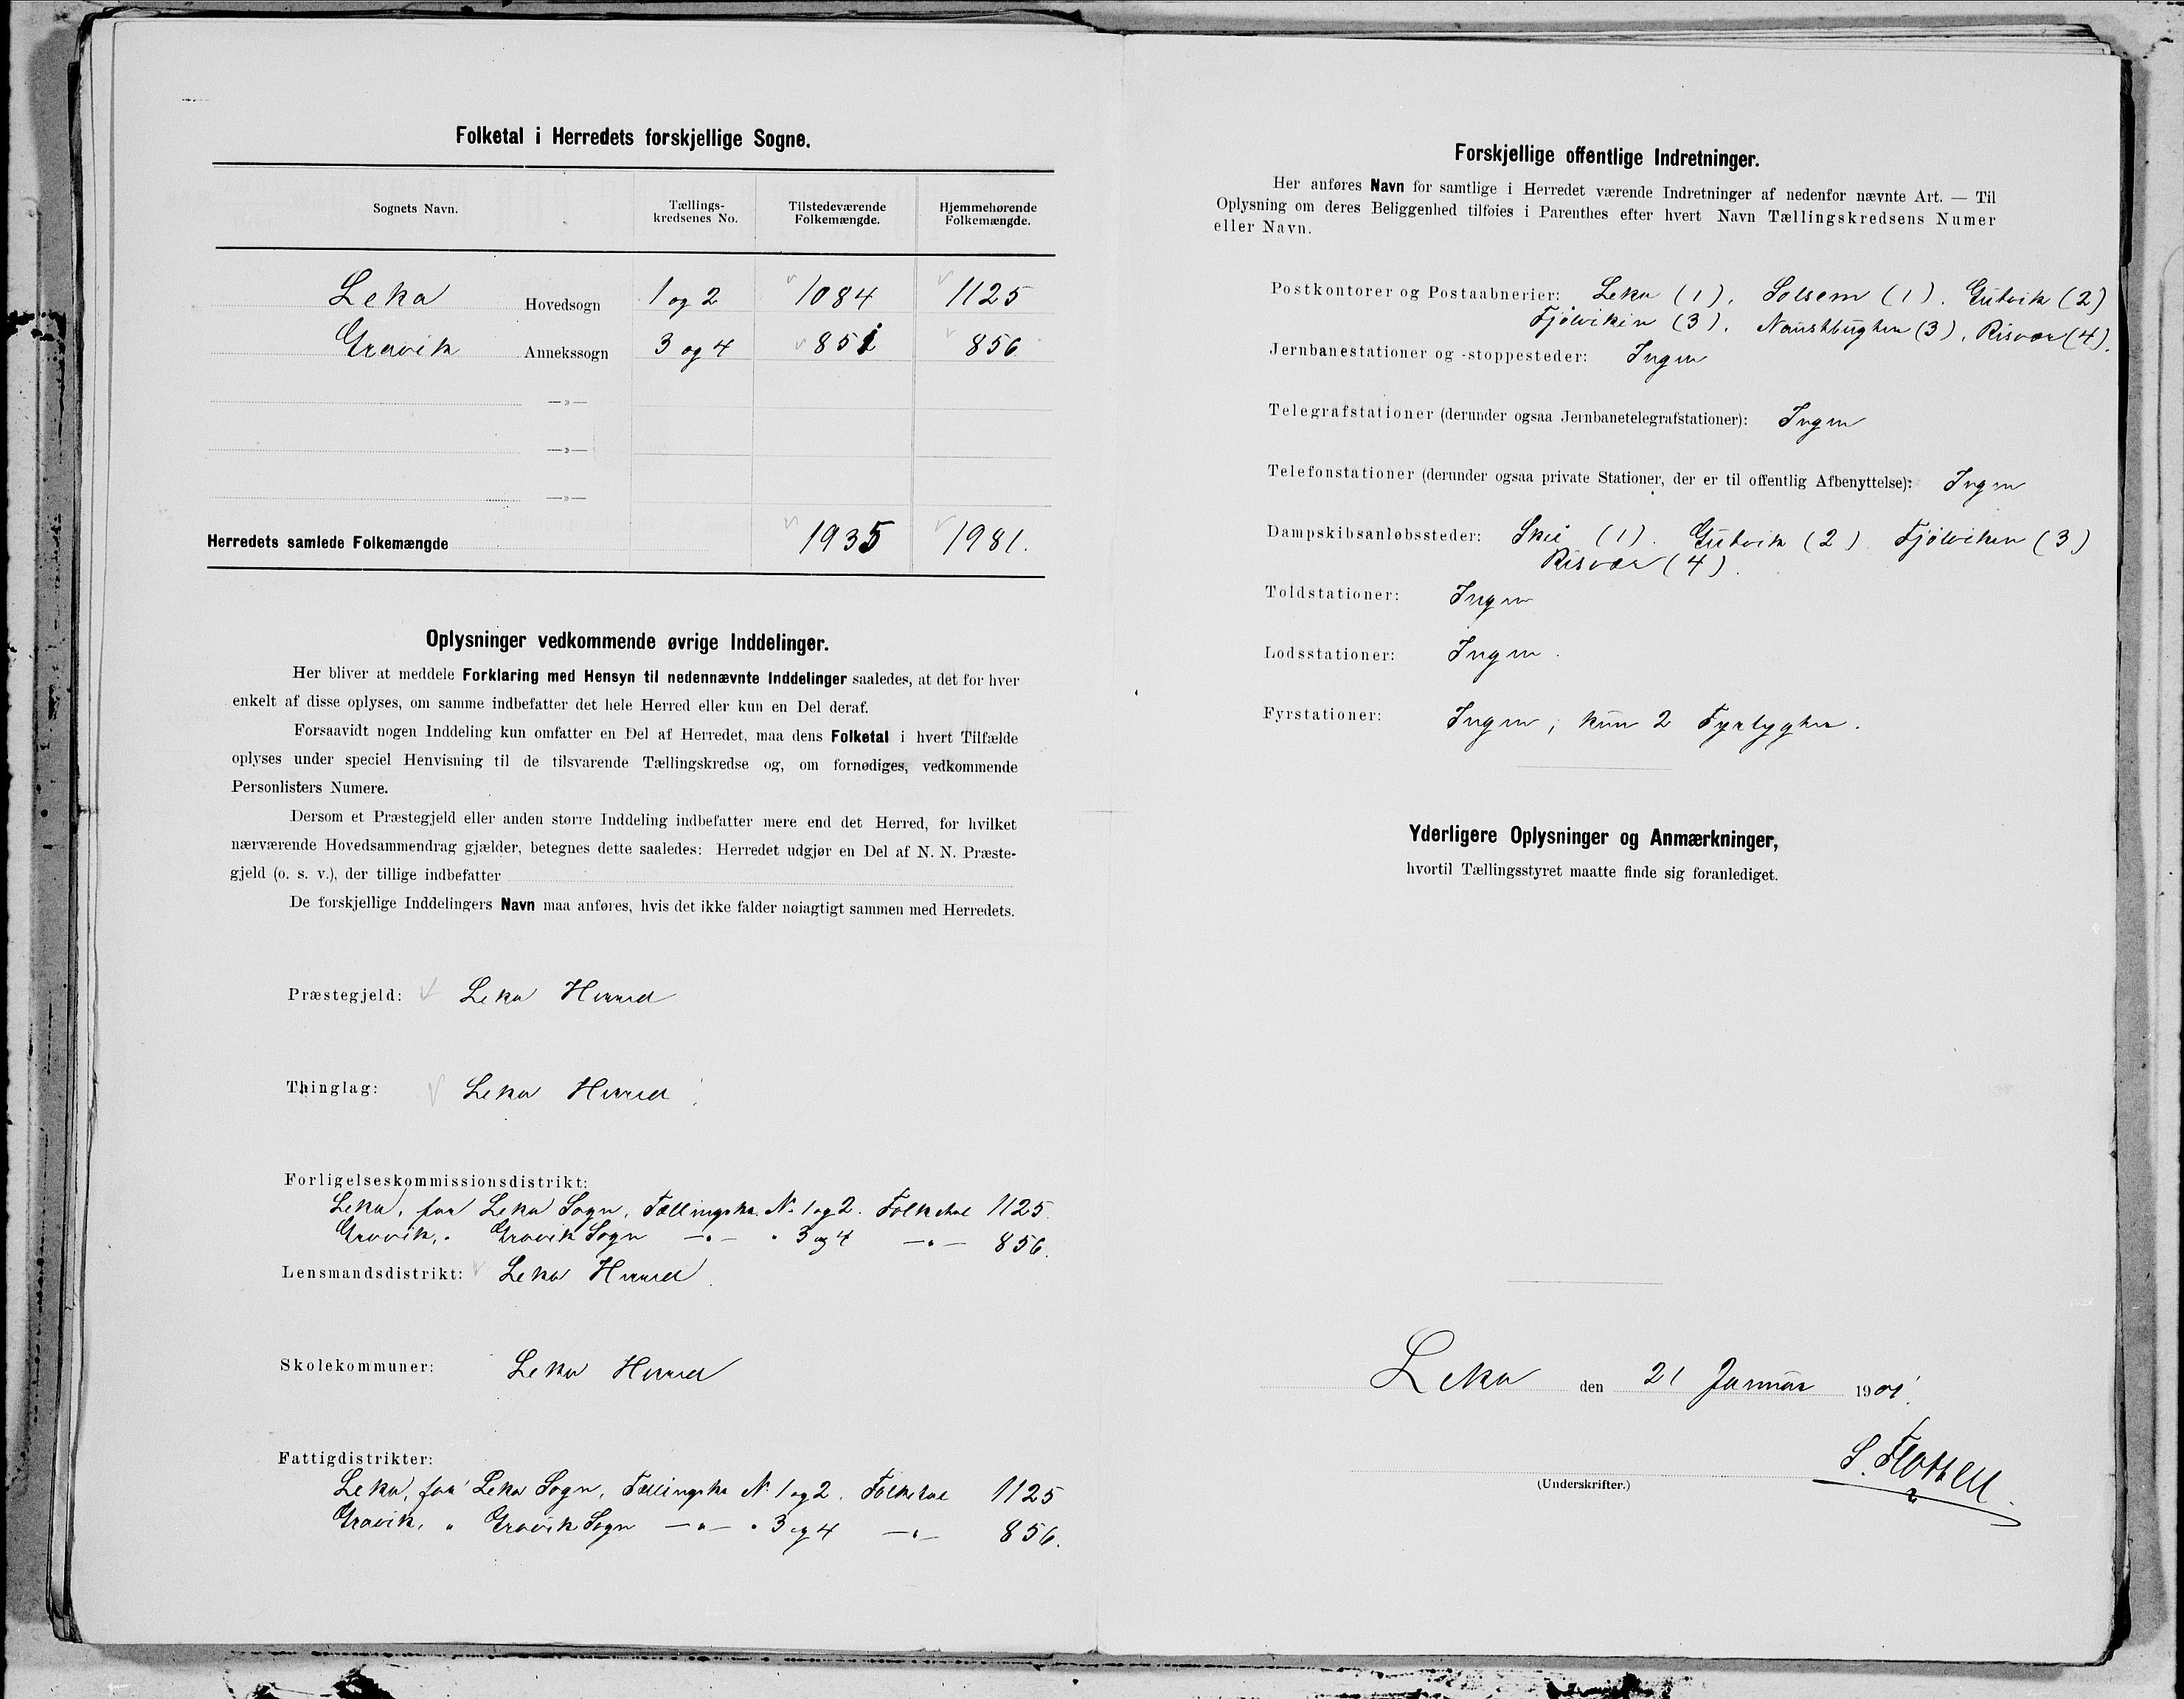 Folketal i Herredets forskjellige Sogne.
Sognets Navn.
Tællings-
kredsenes No.
Tilstedeværende
Folkemængde.
Hjemmehørende
Folkemængde.
Leka Hovedsogn 1 og 2 1084 1125
Gravik Annekssogn 3 og 4 851 856
—»—
—»—
—»—
Herredets samlede Folkemængde 1935 1981.
Oplysninger vedkommende øvrige Inddelinger.
Her bliver at meddele Forklaring med Hensyn til nedennævnte Inddelinger saaledes, at det for hver
enkelt af disse oplyses, om samme indbefatter det hele Herred eller kun en Del deraf.
Forsaavidt nogen Inddeling kun omfatter en Del af Herredet, maa dens Folketal i hvert Tilfælde
oplyses under speciel Henvisning til de tilsvarende Tællingskredse og, om fornødiges, vedkommende
Personlisters Numere.
Dersom et Præstegjeld eller anden større Inddeling indbefatter mere end det Herred, for hvilket
nærværende Hovedsammendrag gjælder, betegnes dette saaledes: Herredet udgjør en Del af N. N. Præste-
gjeld (o. s. v.), der tillige indbefatter
De forskjellige Inddelingers Navn maa anføres, hvis det ikke falder nøiagtigt sammen med Herredets.
Præstegjeld: Leka Herred
Thinglag: Leka Herred
Forligelseskommissionsdistrikt:
Leka, for Leka Sogn, Tællingskr. N. 1 og 2. Folketal 1125.
Gravik, " Gravik Sogn —"— " 3 og 4 —"— 856.
Lensmandsdistrikt: Leka Herred
Skolekommuner: Leka Herred
Fattigdistrikter:
Leka, for Leka Sogn, Tællingskr N. 1 og 2. Folketal 1125
Gravik, " Gravik Sogn —"— " 3 og 4 —"— 856.
Forskjellige offentlige Indretninger.
Her anføres Navn for samtlige i Herredet værende Indretninger af nedenfor nævnte Art. — Til
Oplysning om deres Beliggenhed tilføies i Parenthes efter hvert Navn Tællingskredsens Numer
eller Navn.
Postkontorer og Postaabnerier: Leka (1). Solsem (1). Gutvik (2)
Fjølviken (3). (3). Risvær (4).
Jernbanestationer og -stoppesteder: Ingen
Telegrafstationer (derunder ogsaa Jernbanetelegrafstationer): Ingen
Telefonstationer (derunder ogsaa private Stationer, der er til offentlig Afbenyttelse): Ingen
Dampskibsanløbssteder: Skei (1). Gutvik (2) Fjølviken (3)
Risvær (4).
Toldstationer: Ingen
Lodsstationer: Ingen.
Fyrstationer: Ingen, kun 2 Fyrlygter.
Yderligere Oplysninger og Anmærkninger,
hvortil Tællingsstyret maatte finde sig foranlediget.
Leka den 21 Januar 1901.
(Underskrifter.)